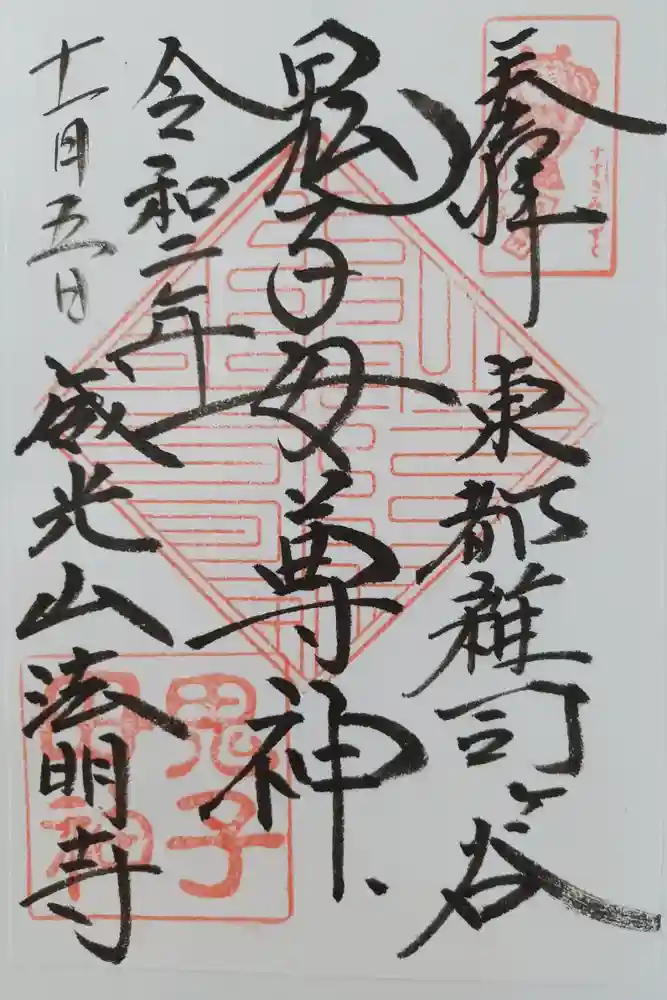 奉拝
東都雑司ヶ谷
鬼子母尊神
令和二年
十一月五日
威光山法明寺
すすきみみずく
鬼子
母神